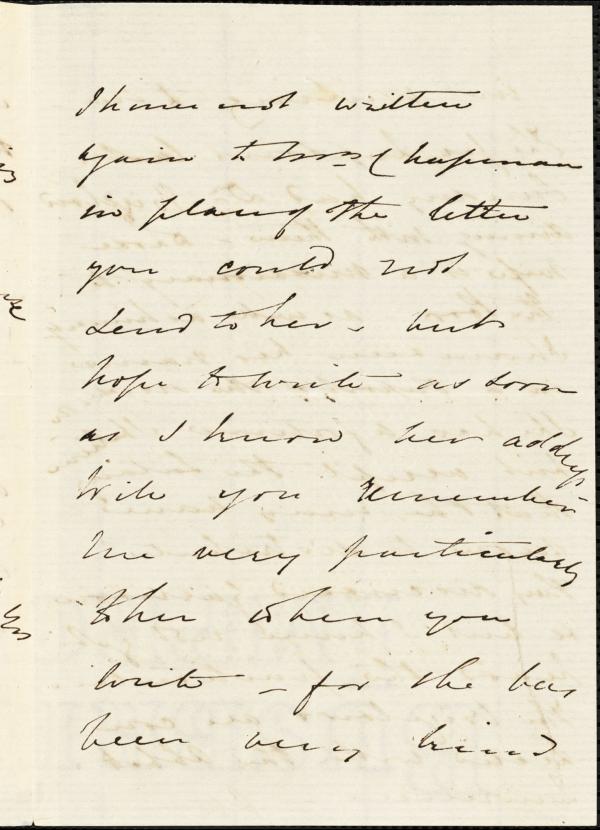 I have not written
again to Mrs Chapman
in place of the letter
you could not
send to her - but
hope to write as soon
as I know her address
Will you remember
me very particularly
to her when you
write - for she has
been very kind